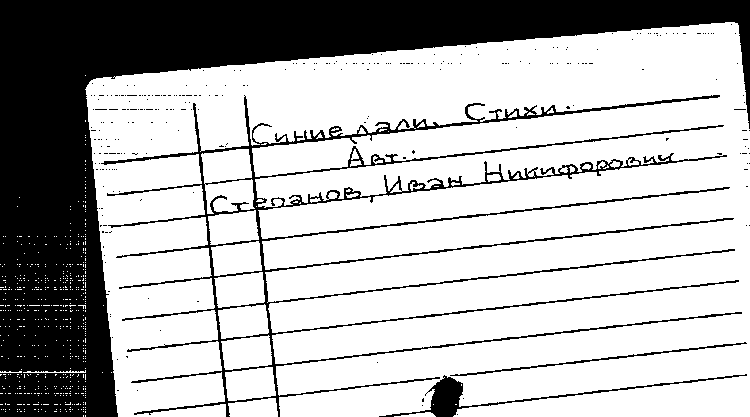 Синие дали. Стихи.
Авт.:
Степанов, Иван Никифорович